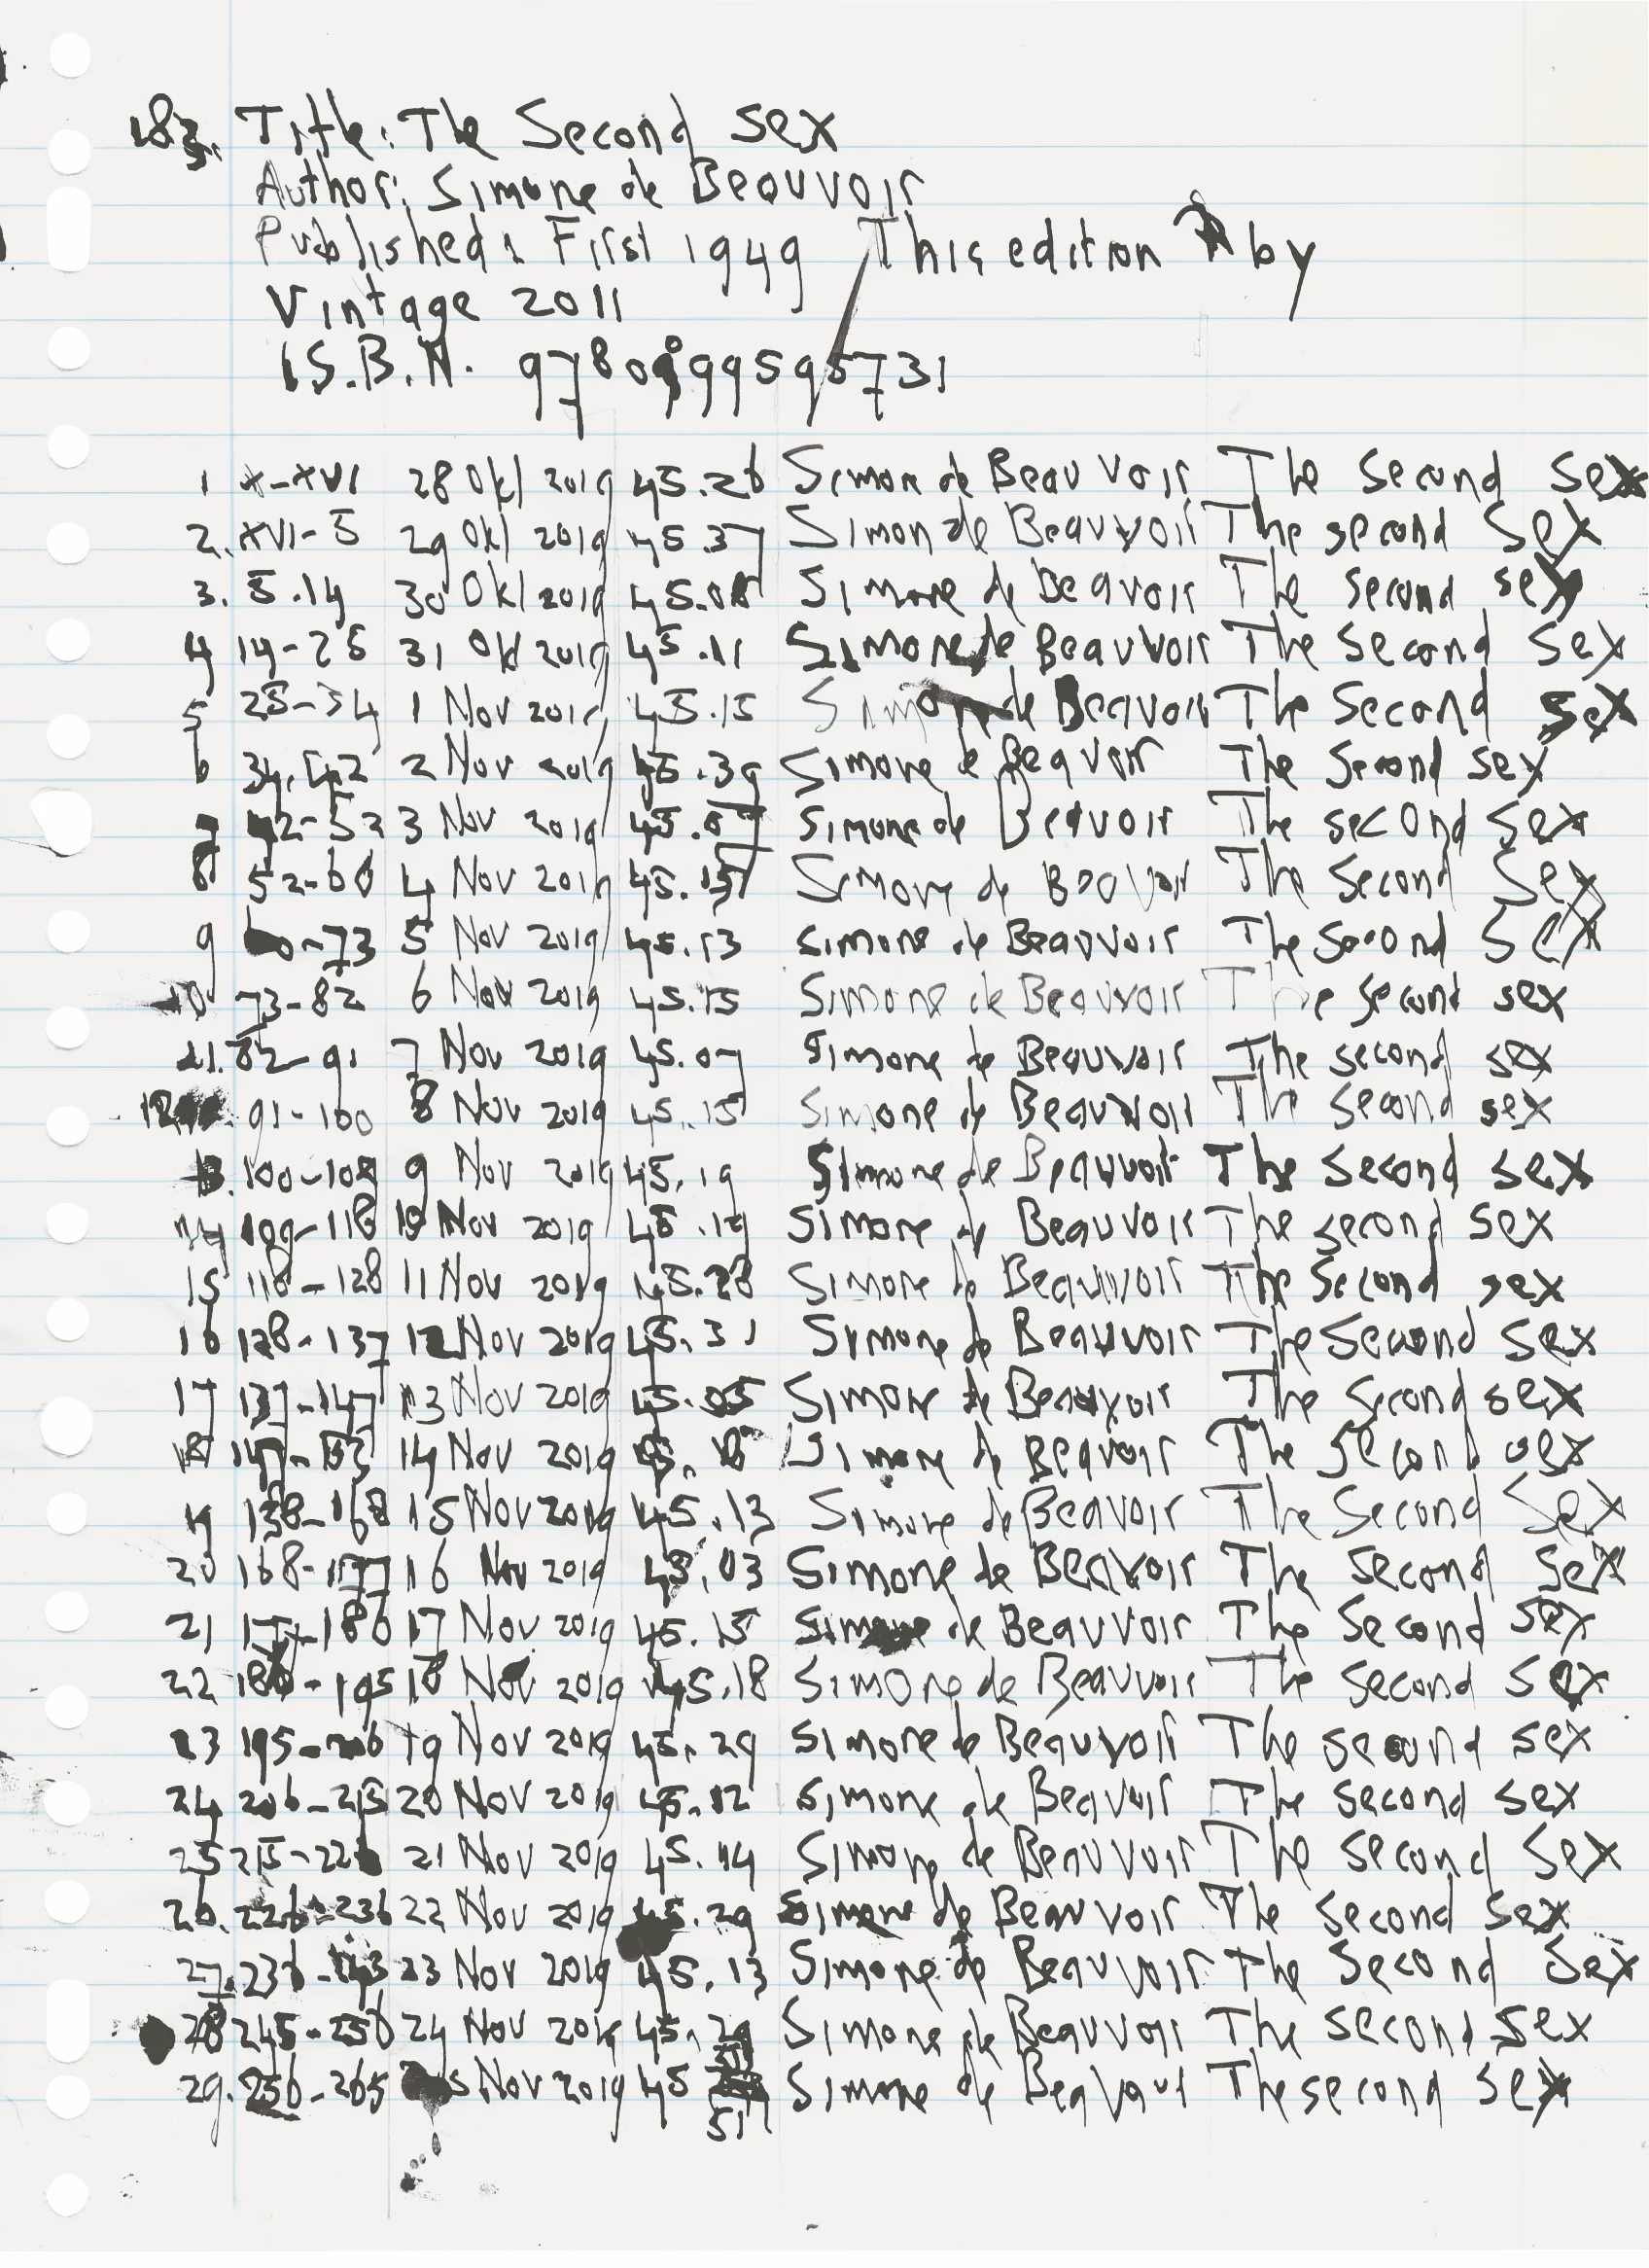 183. Title: The Second Sex
Author: Simone de Beauvoir
Published: First 1949 This edition by
Vintage 2011
I.S.B.N. 9780099595731
1 x-xvi 28 Okt 2019 45.26 Simone de Beauvoir The Second Sex
2. xvi-5 29 Okt 2019 45.37 Simon de Beauvoir The second Sex
3. 5.14 30 Okt 2019 45.08 Simone de Beavoir The Second sex
4 14-25 31 Okt 2019 45.11 Simone de Beauvoir The Second Sex
5 25-34 1 Nov 2019 45.15 Simone de Beavoir The Second Sex
6 34.42 2 Nov 2019 45.39 Simone de Beavoir The Second sex
7 42-52 3 Nov 2019 45.07 Simone de Beavoir The second Sex
8 52-60 4 Nov 2019 45. Simone de Beavoir The Second Sex
9 60-73 5 Nov 2019 45.13 Simone de Beauvoir The Second Sex
10 73-82 6 Nov 2019 45.15 Simone de Beauvoir The Second sex
11. 82-91 7 Nov 2019 45.07 Simone de Beauvoir The second sex
12 91-100 8 Nov 2019 45.15 Simone de Beauvoir The Second sex
13. 100-109 9 Nov 2019 45.19 Simone de Beauvoir The Second sex
14 109-118 10 Nov 2019 45.19 Simone de Beauvoir The second sex
15 118-128 11 Nov 2019 45.28 Simone de Beauvoir The Second sex
16 128-137 12 Nov 2019 45.31 Simone de Beauvoir The Second Sex
17 137-147 13 Nov 2019 45.05 Simone de Beauvoir The Second sex
18 14 Nov 2019 Simone de Beavoir The Second sex
19 158-168 15 Nov 2019 45.13 Simone de Beavoir The Second Sex
20 168-177 16 Nov 2019 45.03 Simone de Beavoir The Second Sex
21 177-186 17 Nov 2019 45.15 Simone de Beauvoir The Second Sex
22 186-195 18 Nov 2019 45.18 Simone de Beauvoir The Second Sex
23 195-206 19 Nov 2019 45.29 Simone de Beauvoir The second sex
24 206-215 20 Nov 2019 45.12 Simone de Beavoir The Second Sex
25 215-226 21 Nov 2019 45.14 Simone de Beauvoir The Second Sex
26. 226-236 22 Nov 2019 45.29 Simone de Beauvoir The Second Sex
27. 236- 23 Nov 2019 45.13 Simone de Beauvoir The Second Sex
28 245-256 24 Nov 2019 45. Simone de Beauvoir The Second Sex
29. 256-265 25 Nov 2019 45 Simone de The second Sex
51